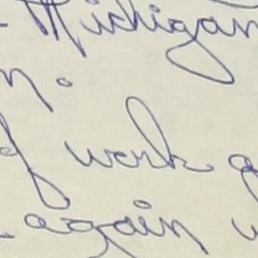 Michigan
n.
work
again